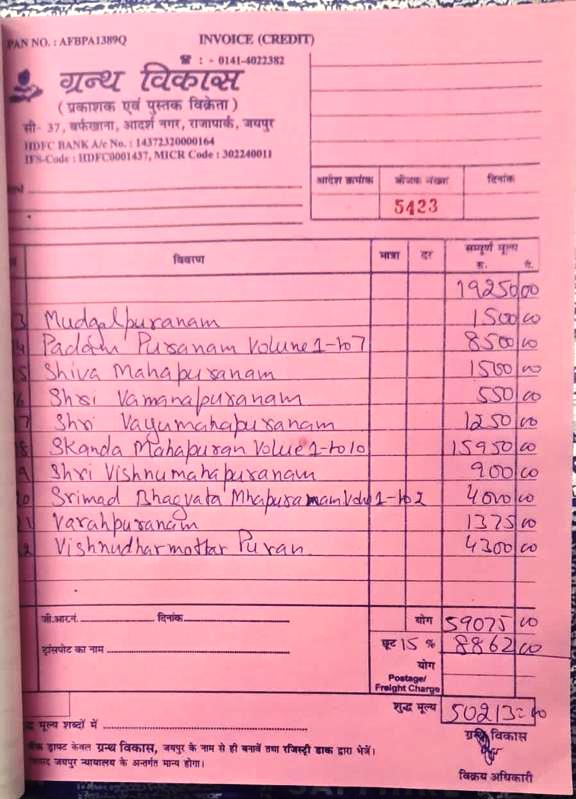 PAN NO. : AFBPA1389Q INVOICE (CREDIT)
☎ : - 0141-4022382
ग्रन्थ विकास
( प्रकाशक एवं पुस्तक विक्रेता )
सी- 37, बर्फखाना, आदर्श नगर, राजापार्क, जयपुर
HDFC BANK A/c No. : 14372320000164
IFS-Code : HDFC0001437, MICR Code : 302240011
आदेश क्रमांक बीजक संख्या दिनांक
5423
विवरण मात्रा दर सम्पूर्ण मूल्य
रु. पै.
19250 00
3 Mudgalpuranam 1500 00
4 Padam Puranam Volume 1-to 7 8500 00
5 Shiva Mahapuranam 1500 00
6 Shri Vamanapuranam 550 00
7 Shri Vayumahapuranam 1250 00
8 Skanda Mahapuran Volue 1-to 10 15950 00
9 Shri Vishnumahapuranam 900 00
20 Srimad Bhagvata Mhapuramam Volu 1-to 2 4000 00
21 Varahpuranam 1375 00
2 Vishnudharmottar Puran 4300 00
जी.आर.नं. दिनांक योग 59075 00
ट्रांसपोट का नाम छूट 15 % 8862 00
योग
Postage/
Freight Charge
शुद्ध मूल्य 50213=00
शुद्ध मूल्य शब्दों में
ग्रन्थ विकास
बैंक ड्राफ्ट केवल ग्रन्थ विकास, जयपुर के नाम से ही बनावें तथा रजिस्ट्री डाक द्वारा भेजें।
जयपुर न्यायालय के अन्तर्गत मान्य होगा।
विक्रय अधिकारी